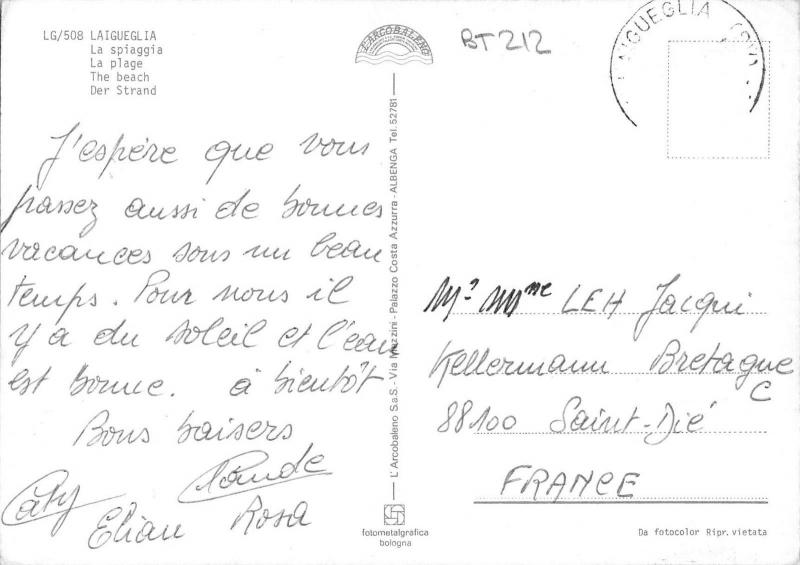 LG/508 LAIGUEGLIA
La spiaggia
La plage
The beach
Der Strand
L'ARCOBALENO
BT212
LAIGUEGLIA (SV)
J'espère que vous
passez aussi de bonnes
vacances sous un beau
temps. Pour nous il
y a du soleil et l'eau
est bonne. à bientôt
Bons baisers
Caty Claude
Elian Rosa
L'Arcobaleno S.a.S. - Via Mazzini - Palazzo Costa Azzurra - ALBENGA Tel. 52781
Mr Mme LEH Jacqui
Kellermann Bretagne
C
88100 Saint-Dié
FRANCE
fotometalgrafica
bologna
Da fotocolor Ripr. vietata